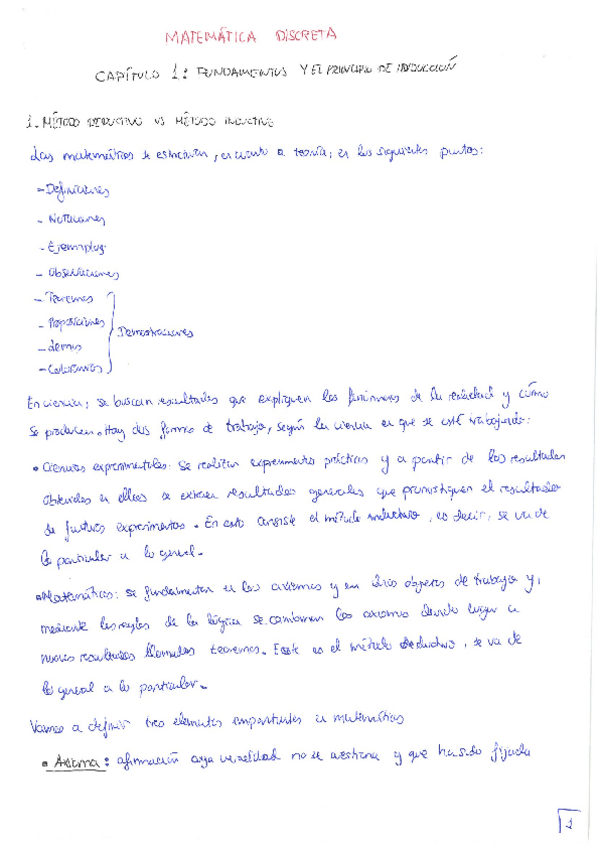 MATEMÁTICA DISCRETA
CAPÍTULO 1: FUNDAMENTOS Y EL PRINCIPIO DE INDUCCIÓN
1. MÉTODO DEDUCTIVO VS MÉTODO INDUCTIVO
Las matemáticas se estructuran, en cuanto a teoría, en los siguientes puntos:
- Definiciones
- Notaciones
- Ejemplos
- Observaciones
- Teoremas
- Proposiciones
Demostraciones
- Lemas
- Corolarios
En ciencia, se buscan resultados que expliquen los fenómenos de la realidad y cómo
se producen. Hay dos formas de trabajo, según la ciencia en que se esté trabajando:
• Ciencias experimentales: Se realizan experimentos prácticos y a partir de los resultados
obtenidos en ellos se extraen resultados generales que pronostiquen el resultado
de futuros experimentos. En esto consiste el método inductivo, es decir, se va de
lo particular a lo general.
• Matemáticas: se fundamentan en los axiomas y en otros objetos de trabajo y,
mediante las reglas de la lógica se combinan los axiomas dando lugar a
nuevos resultados llamados teoremas. Este es el método deductivo, se va de
lo general a lo particular.
Vamos a definir tres elementos importantes en matemáticas
• Axioma: afirmación cuya veracidad no se cuestiona y que ha sido fijada
1